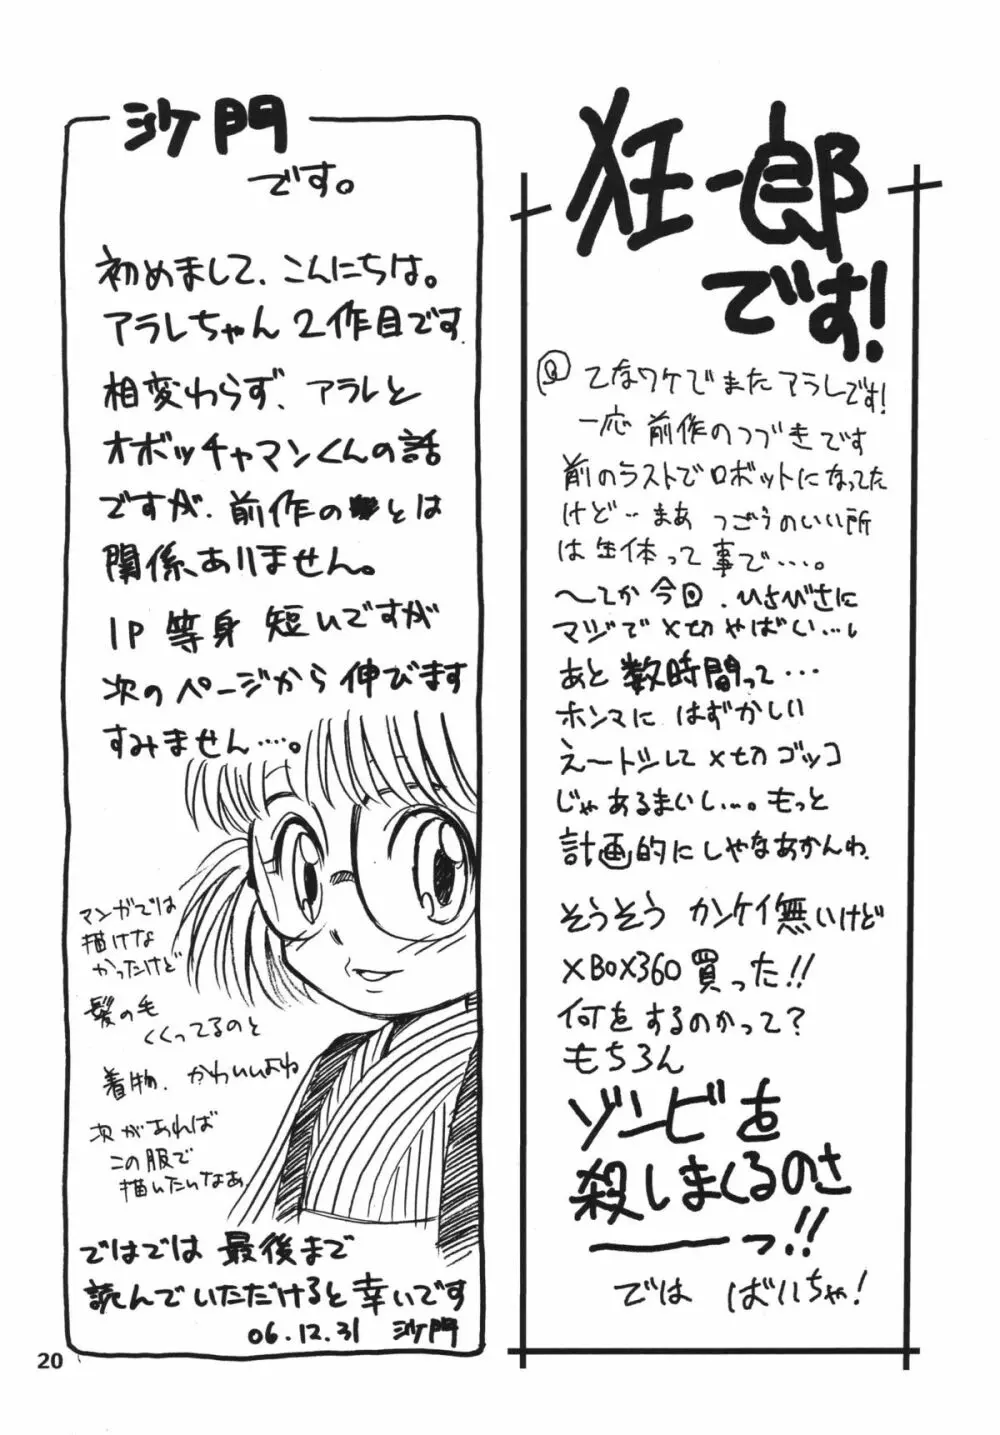 狂一郎
です!
てなワケでまたアラレです!
一応 前作のつづきです
前のラストでロボットになってた
けど‥まあ つごうのいい所
は生体って事で‥‥。
〜てか今回、ひさびさに
マジで〆切やばい‥‥
あと数時間って‥‥
ホンマに はずかしい
え〜トシして〆切ゴッコ
じゃあるまいし‥‥。もっと
計画的にしゃなあかんわ
そうそう カンケイ無いけど
XBOX360買った!!
何をするのかって?
もちろん
ゾンビを
殺しまくるのさ
――っ!!
では ばいちゃ!
沙門
です。
初めまして、こんにちは。
アラレちゃん 2作目です.
相変わらず、アラレと
オボッチャマンくんの話
ですが、前作の とは
関係ありません。
1P 等身 短いですが
次のページから伸びます
すみません‥‥。
マンガでは
描けな
かったけど
髪の毛
くくってるのと
着物、かわいいよね
次があれば
この服で
描いたいなあ
ではでは 最後まで
読んでいただけると幸いです
06.12.31 沙門
20